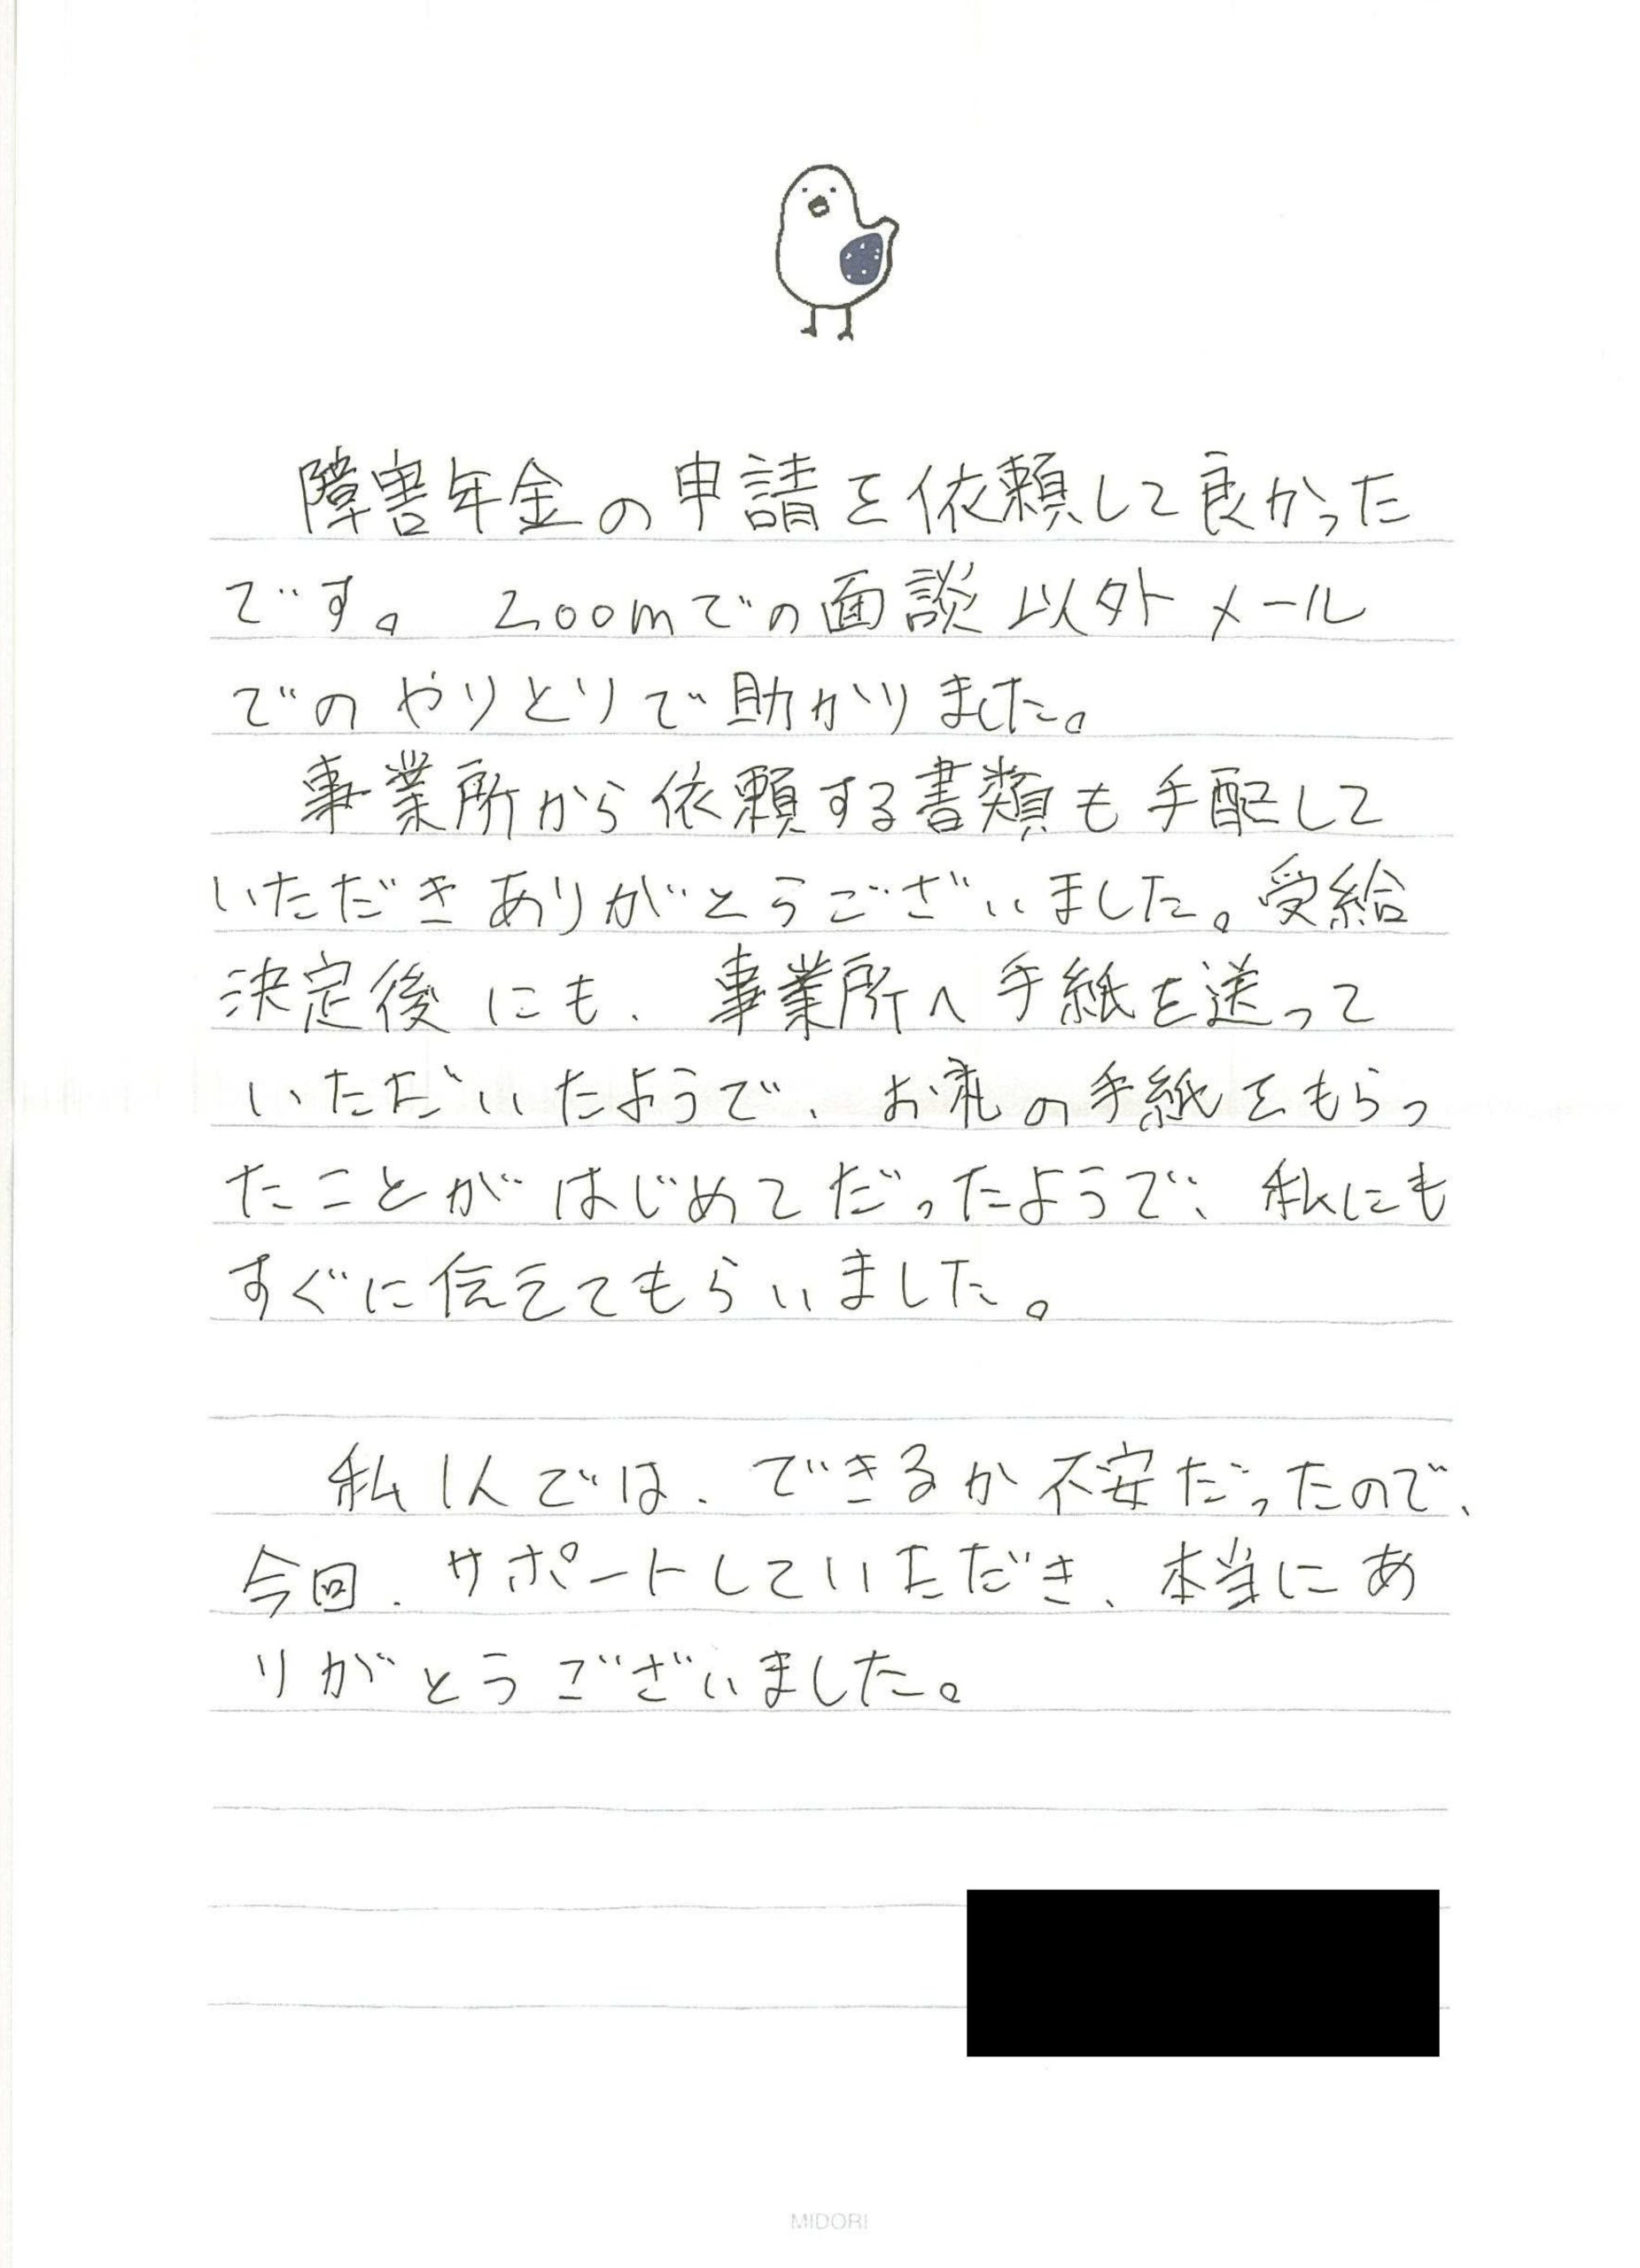 障害年金の申請を依頼して良かった
です。 Zoomでの面談以外メール
でのやりとりで助かりました。
事業所から依頼する書類も手配して
いただきありがとうございました。受給
決定後にも、事業所へ手紙を送って
いただいたようで、お礼の手紙をもらっ
たことがはじめてだったようで、私にも
すぐに伝えてもらいました。
私1人では、できるか不安だったので、
今回、サポートしていただき、本当にあ
りがとうございました。
MIDORI